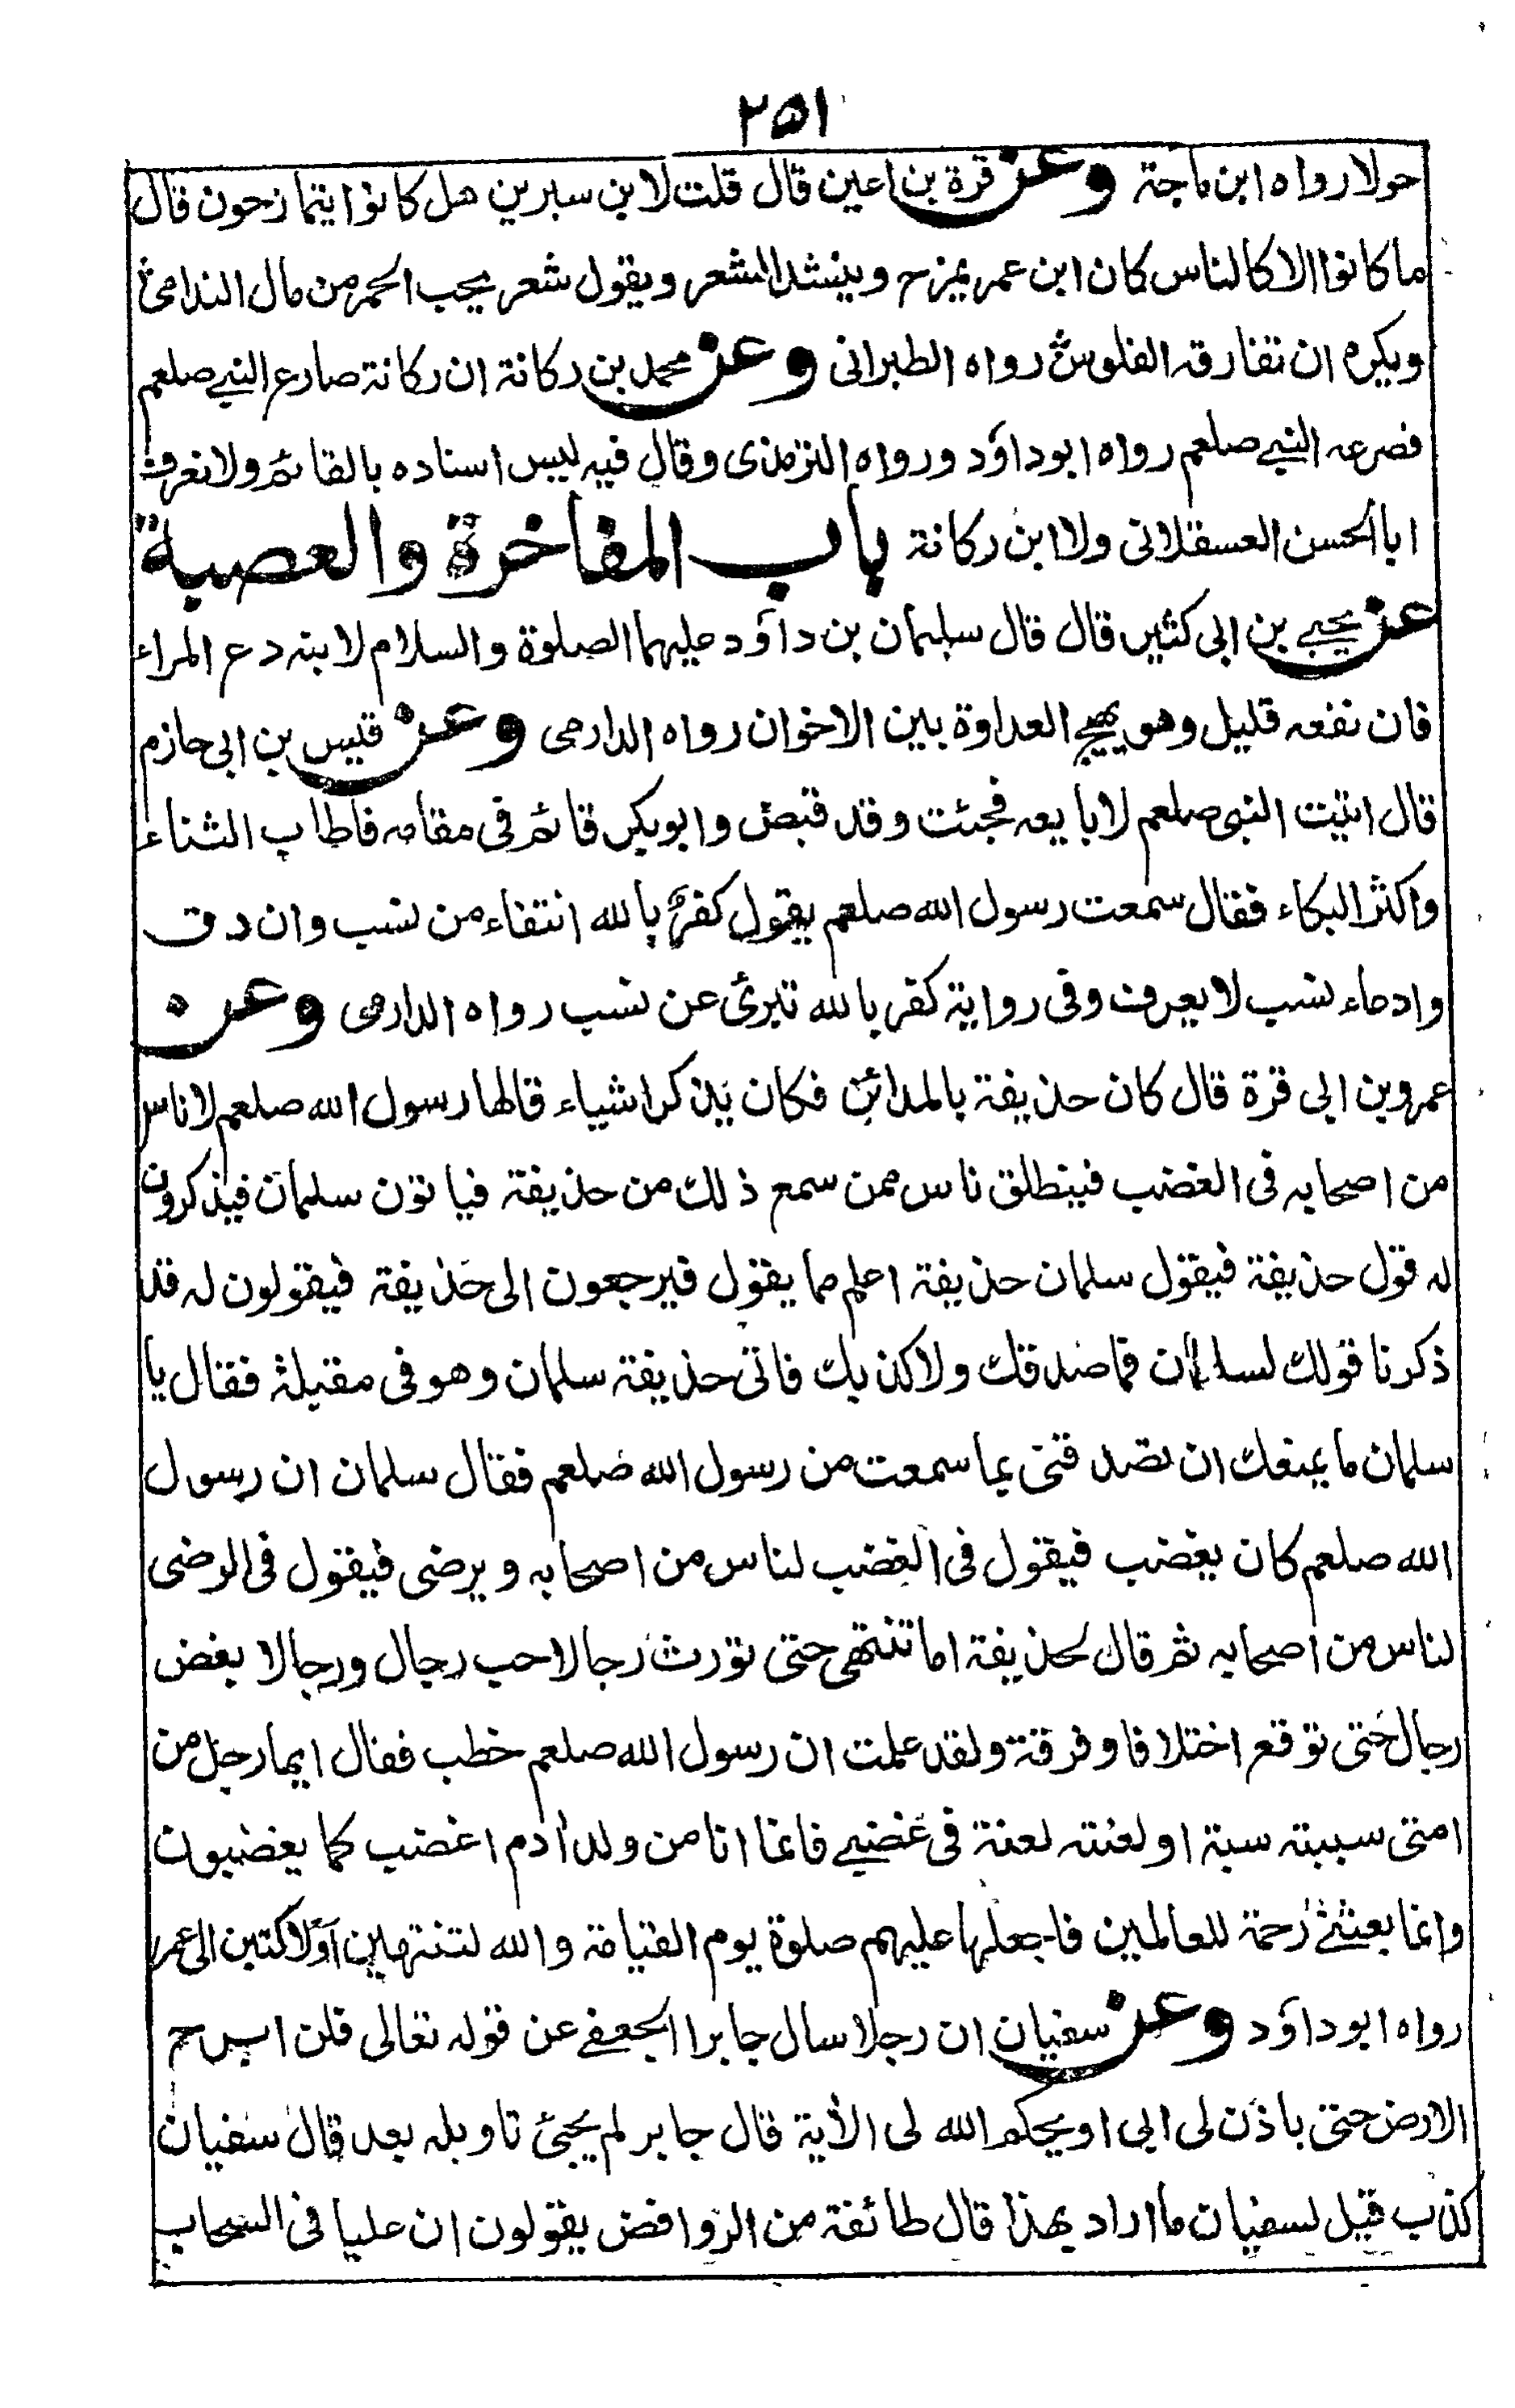 ٢٥١
حولا رواه ابن ماجة وعن قرة بن اعين قال قلت لابن سيرين هل كانوا يتمازحون قال
ما كانوا الا كالناس كان ابن عمر يمزح وينشد الشعر ويقول شعر يحب الخمر من مال الندامى
ويكره ان تفارقه الفلوس رواه الطبرانى وعن محمد بن ركانة ان ركانة صارع النبي صلعم
فصرعه النبي صلعم رواه ابو داؤد ورواه الترمذى وقال فيه ليس اسناده بالقائم ولا نعرف
ابا الحسن العسقلانى ولا ابن ركانة باب المفاخرة والعصبية
عن يحيى بن ابى كثير قال قال سليمان بن داؤد عليهما الصلوة والسلام لابنه دع المراء
فان نفعه قليل وهو يهيج العداوة بين الاخوان رواه الدارمى وعن قيس بن ابى حازم
قال اتيت النبى صلعم لابايعه فجئت وقد قبض وابو بكر قائم فى مقامه فاطاب الثناء
واكثر البكاء فقال سمعت رسول الله صلعم يقول كفر بالله انتفاء من نسب وان دق
وادعاء نسب لا يعرف وفى رواية كفر بالله تبرئ عن نسب رواه الدارمى وعن
عمرو بن ابى قرة قال كان حذيفة بالمدائن فكان يذكر اشياء قالها رسول الله صلعم لاناس
من اصحابه فى الغضب فينطلق ناس ممن سمع ذلك من حذيفة فياتون سلمان فيذكرون
له قول حذيفة فيقول سلمان حذيفة اعلم مما يقول فيرجعون الى حذيفة فيقولون له قد
ذكرنا قولك لسلمان فما صدقك ولا كذبك فاتى حذيفة سلمان وهو فى مقبلة فقال يا
سلمان ما يمنعك ان تصدقنى بما سمعت من رسول الله صلعم فقال سلمان ان رسول
الله صلعم كان يغضب فيقول فى الغضب لناس من اصحابه ويرضى فيقول فى الرضى
لناس من اصحابه ثم قال لحذيفة اما تنتهى حتى تورث رجالا حب رجال ورجالا بغض
رجال حتى توقع اختلافا وفرقة ولقد علمت ان رسول الله صلعم خطب فقال ايما رجل من
امتى سببته سبة او لعنته لعنة فى غضبي فانما انا من ولد ادم اغضب كما يغضبون
وانما بعثني رحمة للعالمين فاجعلها عليهم صلوة يوم القيامة والله لتنتهين اولاكتبن الى عمر
رواه ابو داؤد وعن سفيان ان رجلا سال جابرا الجعفي عن قوله تعالى فلن ابرح
الارض حتى ياذن لى ابى او يحكم الله لى الأية قال جابر لم يجئ تاويله بعد قال سفيان
كذب قيل لسفيان ما اراد بهذا قال طائفة من الروافض يقولون ان عليا فى السحاب